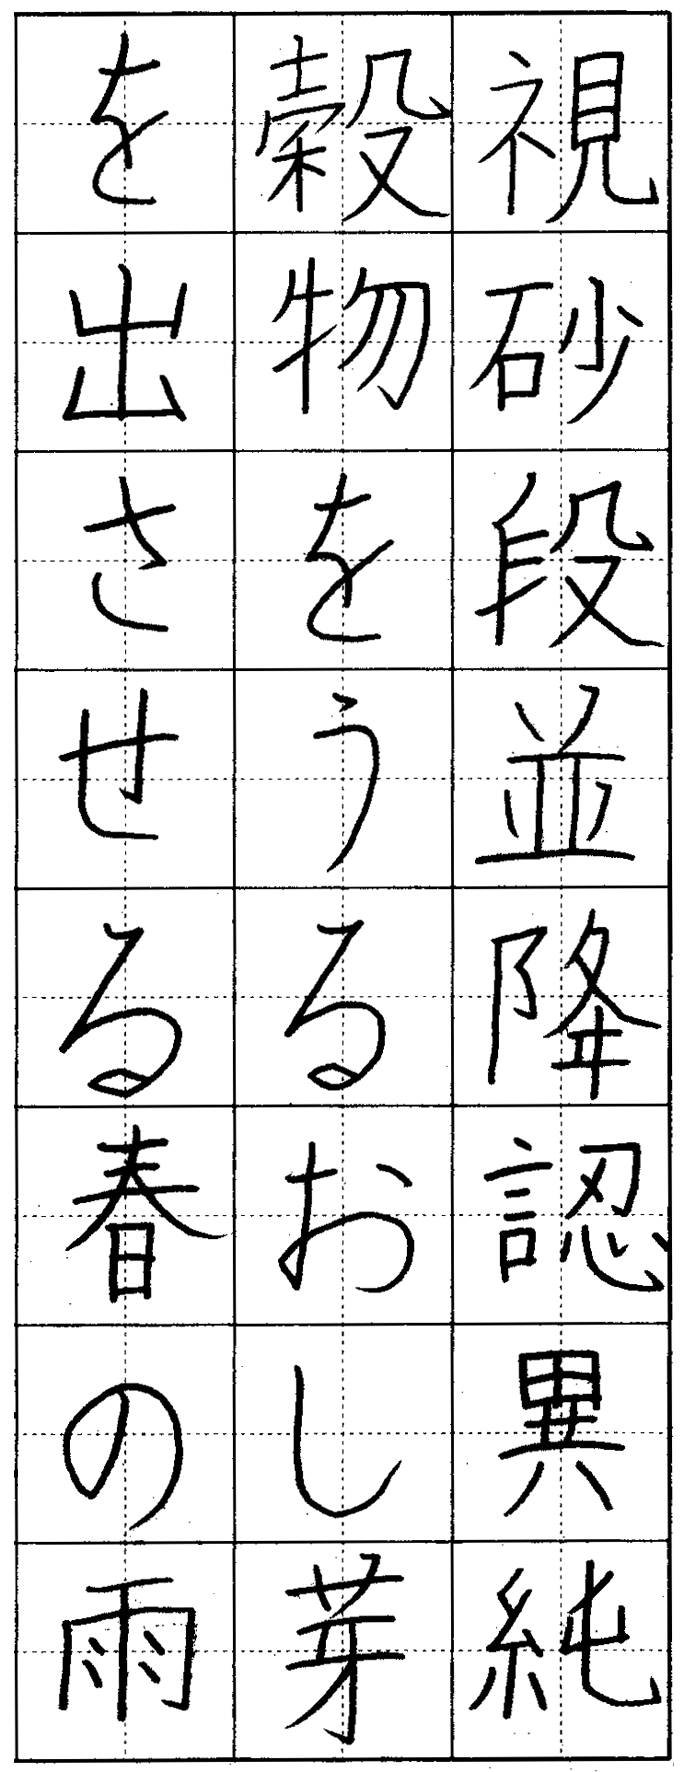 視砂段並降認異純
穀物をうるおし芽
を出させる春の雨